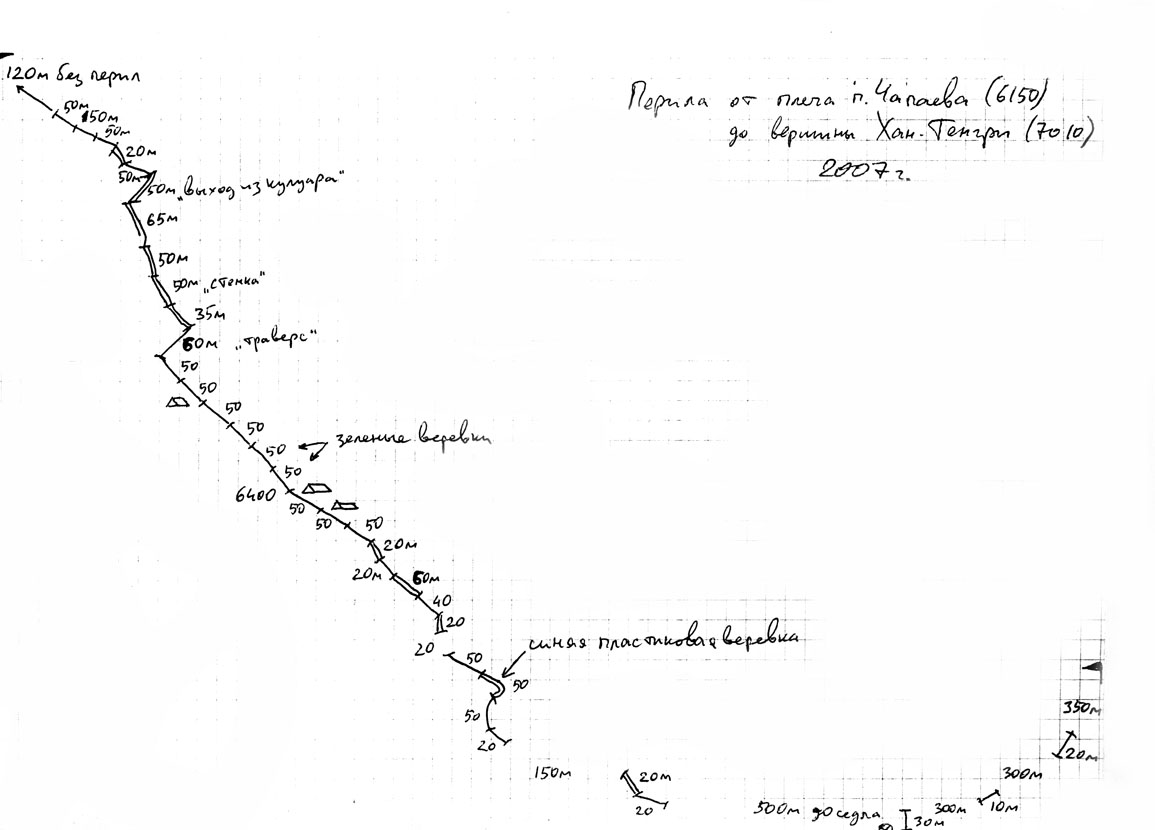 120м без перил
Перила от плеча п. Чапаева (6150)
до вершины Хан-Тенгри (7010)
2007 г.
50м
150м
50м
20м
50м
50м „выход из кулуара"
65м
50м
50м „стенка"
35м
60м „траверс"
50
50
50
50
50
зеленые веревки
50
6400
50
50
50
20м
20м
60м
40
20
20
синяя пластиковая веревка
50
50
50
20
350м
20м
150м
20м
20
300м
10м
500м до седла
300м
30м